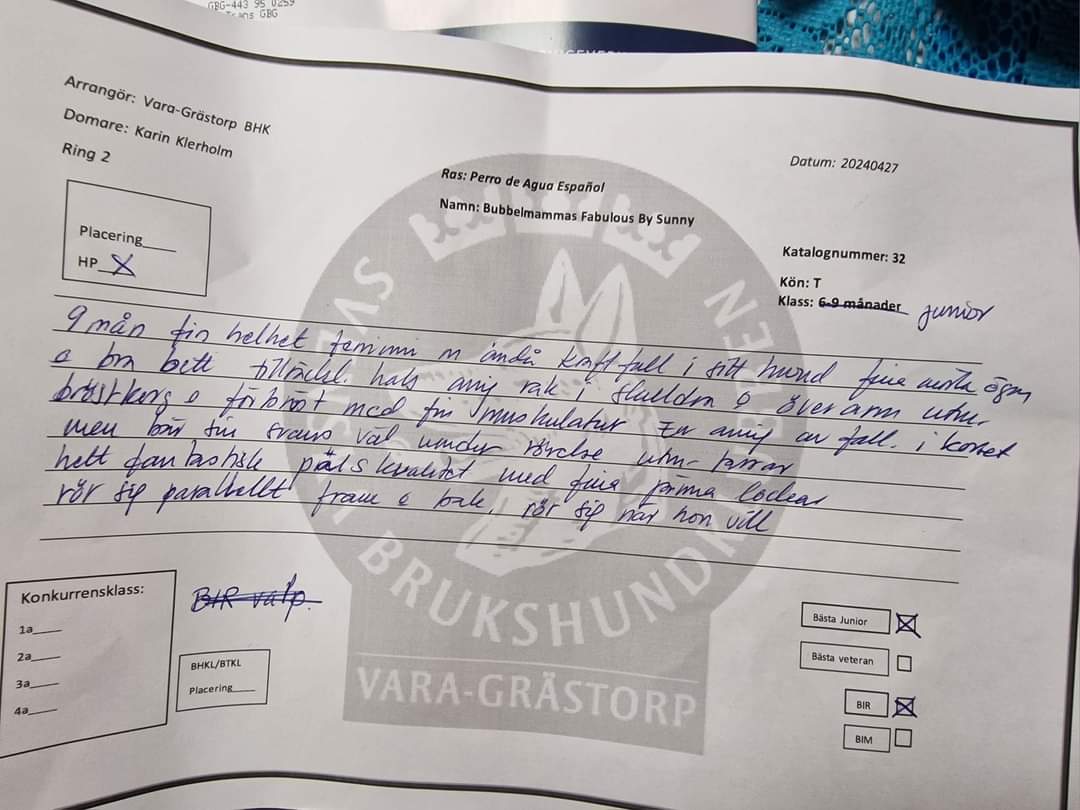 GBG-443 95 0259
Trans GBG
Arrangör: Vara-Grästorp BHK
Domare: Karin Klerholm
Ring 2
Datum: 20240427
Ras: Perro de Agua Español
Namn: Bubbelmammas Fabulous By Sunny
Placering____
HP__X
Katalognummer: 32
Kön: T
Klass: 6-9 månader junior
9 mån fin helhet feminin m ändå kraftfull i sitt huvud fina mörka ögon
o bra bett tillräckl. hals aning rak i skuldra o överarm utm.
bröstkorg o förbröst med fin muskulatur En aning av fall. i korset
men bär sin svans väl under rörelse utm- tassar
helt fantastisk pälskvalitet med fina jämna lockar
rör sig parallellt fram o bak, rör sig när hon vill
BRUKSHUNDKLUBBEN
VARA-GRÄSTORP
Konkurrensklass:
1a____
2a____
3a____
4a____
BIR valp.
BHKL/BTKL
Placering____
Bästa Junior
Bästa veteran
BIR
BIM